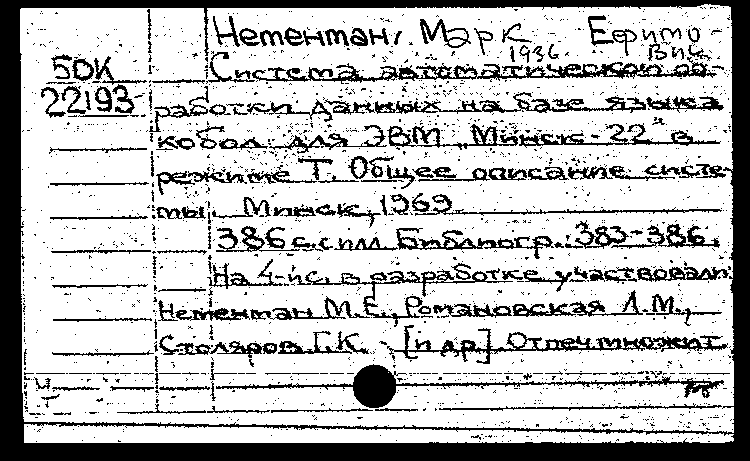 Неменман, Марк Ефимо-
1936. вич
50К
Система автоматической об-
22193 работки данных на базе языка
кобол для ЭВМ „Минск-22" в
режиме Т. Общее описание систе-
мы. Минск, 1969
386 с. с ил. Библиогр.: 383-386.
На 4-й с. в разработке участвовали
Неменман М.Е., Романовская Л.М.,
Столяров Г.К. [и др.] Отпеч множит